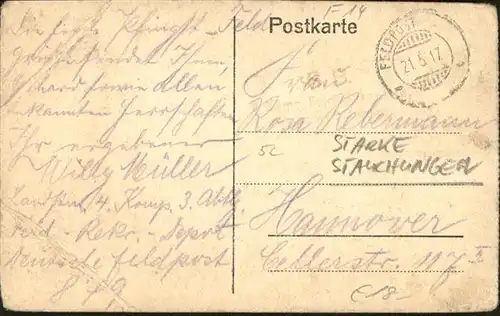 Die besten Pfingst-
grüße sendet Ihnen,
sowie Allen
bekannten Herrschaften
Ihr ergebener
Willy Müller
Landstm. 4. Komp. 3. Abtlg.
Feld-Rekr.-Depot
Deutsche Feldpost
Feld-
Postkarte
F 14
FELDPOST
21.5.17.
Frau
Rosa Rebermann
52
STARKE
STAUCHUNGEN
Hannover
Cellerstr. 117 I